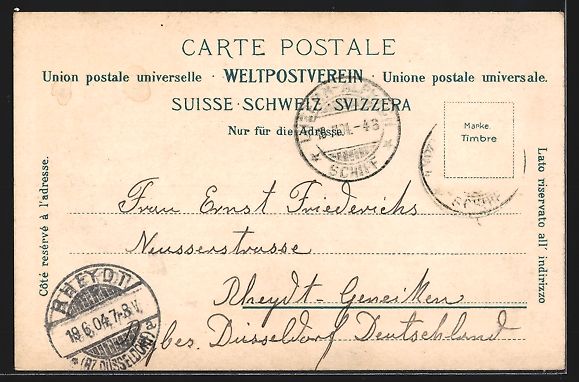 CARTE POSTALE
Union postale universelle · WELTPOSTVEREIN · Unione postale universale.
SUISSE · SCHWEIZ · SVIZZERA
Nur für die Adresse.
Marke.
Timbre
SCHIFF
Côté resérvé à l'adresse.
Lato riservato all' indirizzo
Frau Ernst Friederichs
Neusserstrasse
Rheydt-Geneiken
Düsseldorf Deutschland
RHEYDT
19.6.04. 7-8.V.
(BZ. DÜSSELDORF)